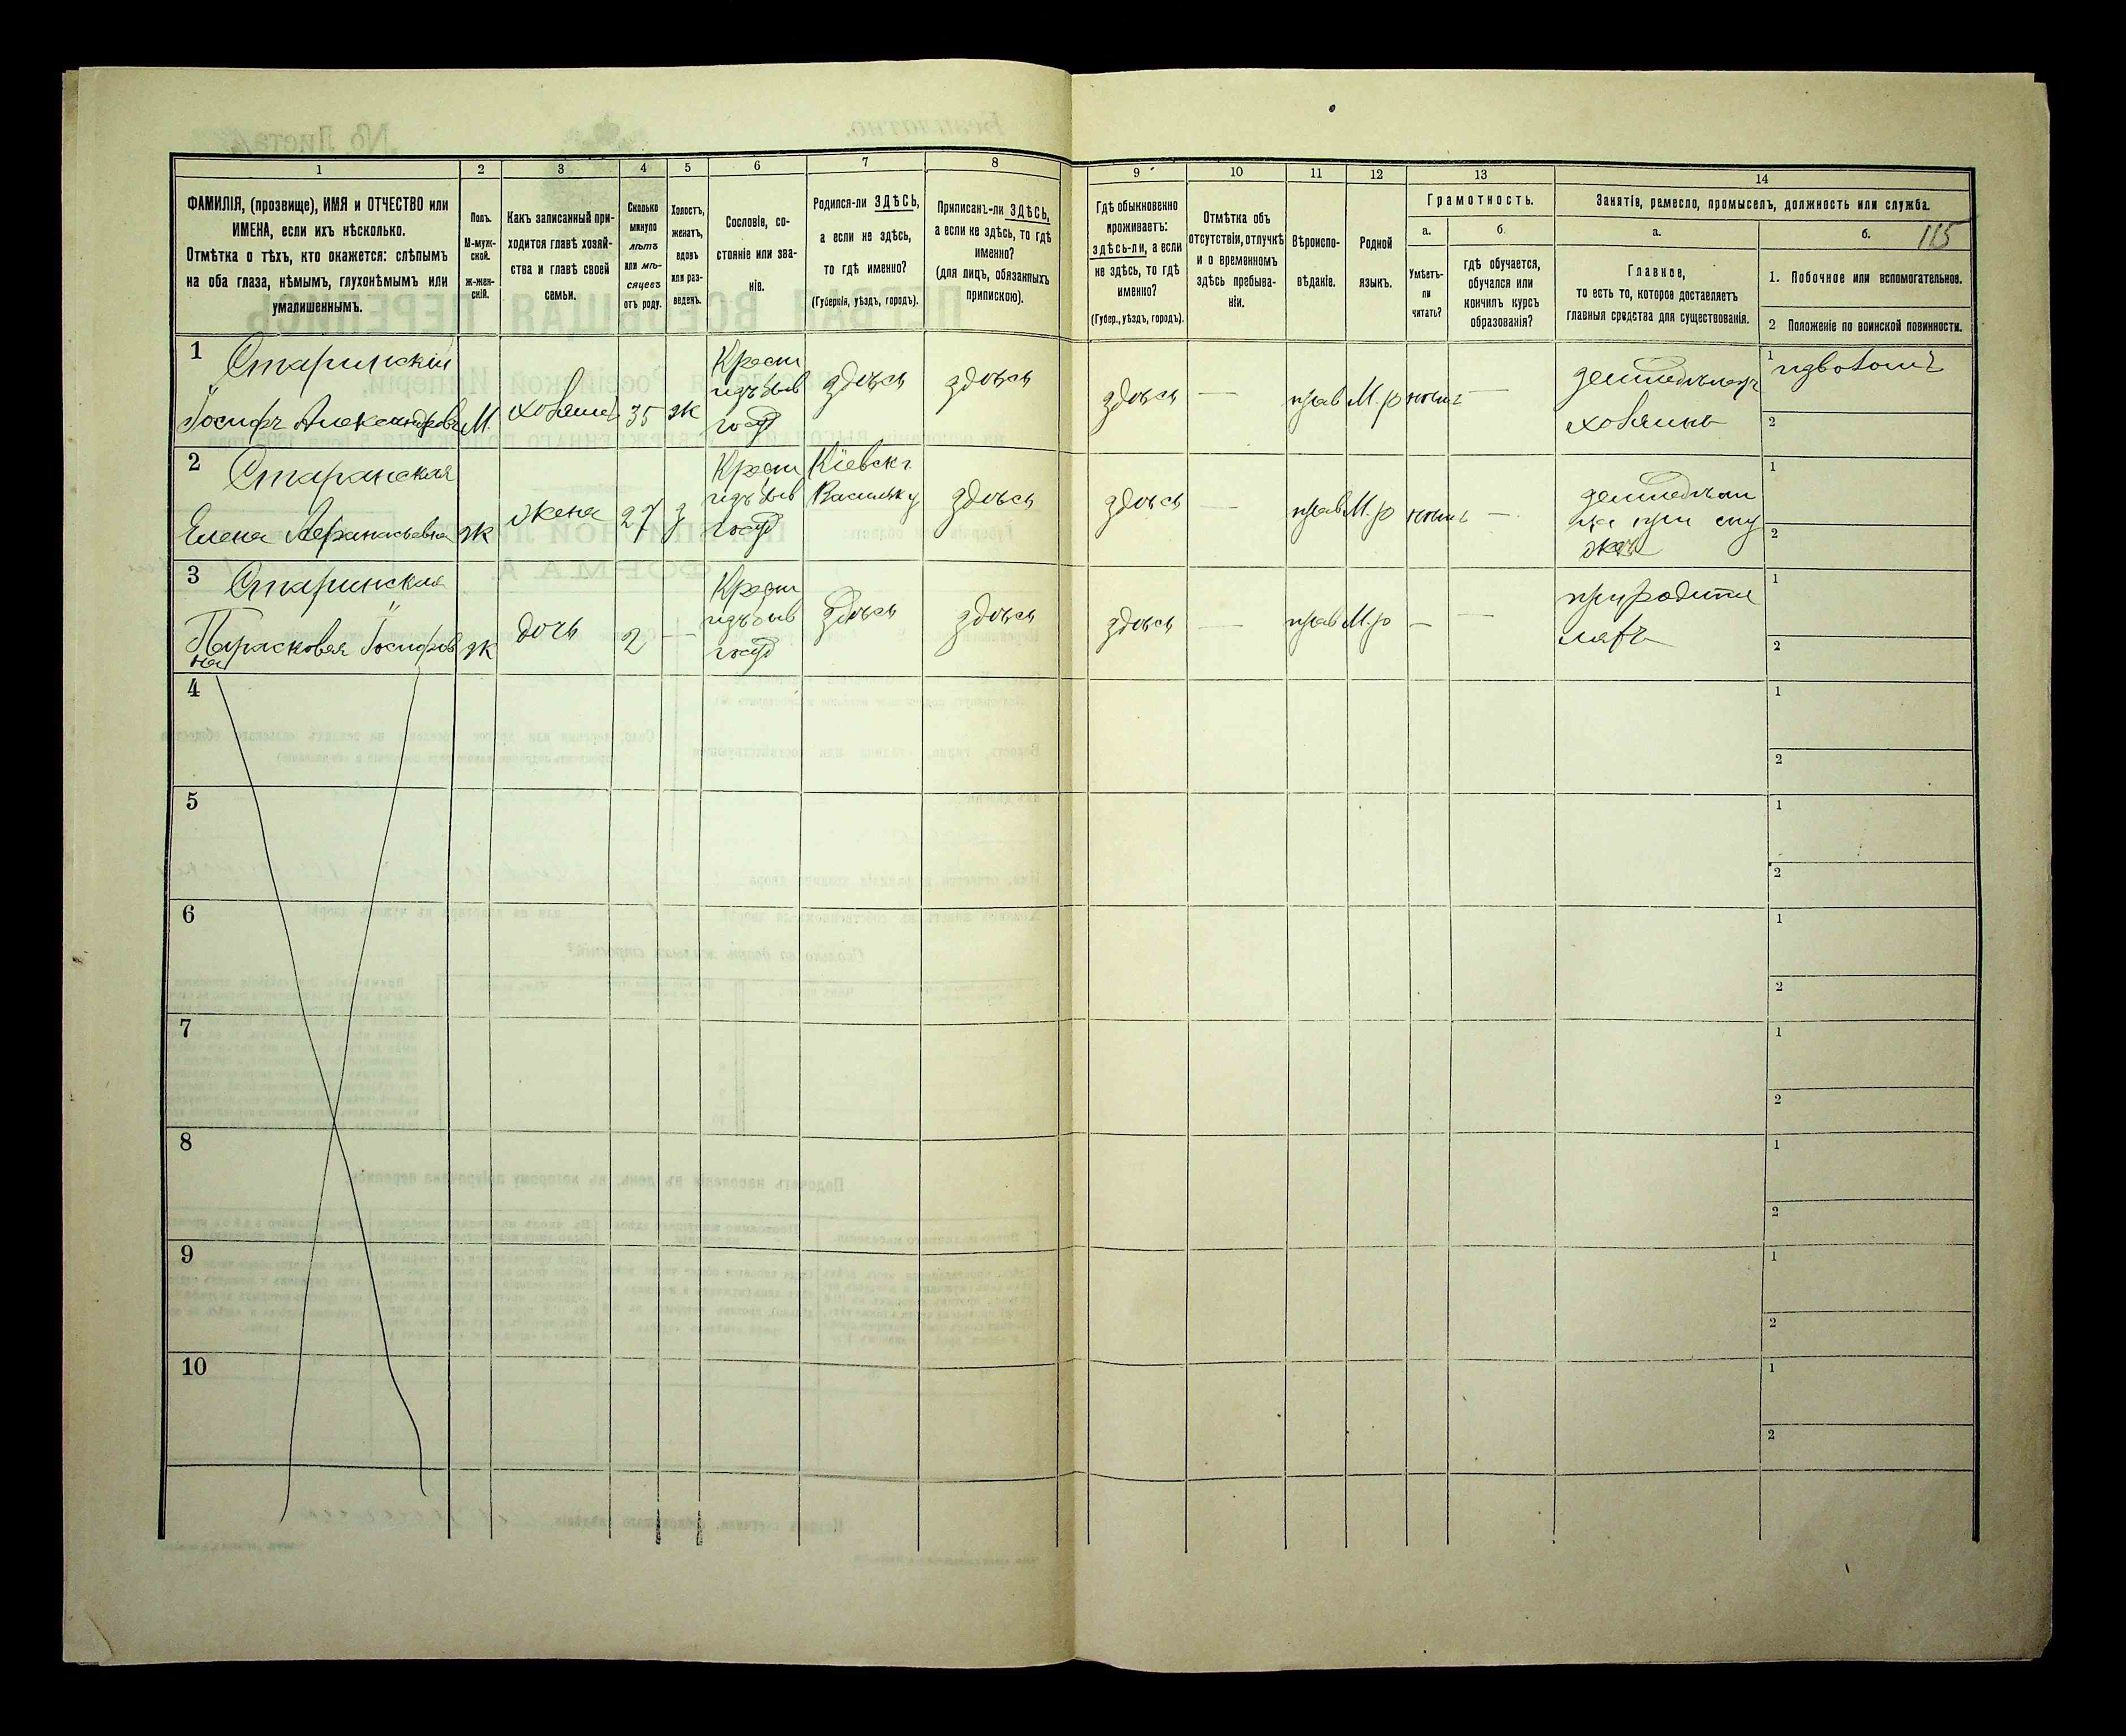 1
2
3
4
5
6
7
8
ФАМИЛІЯ, (прозвище), ИМЯ и ОТЧЕСТВО или
ИМЕНА, если ихъ нѣсколько.
Отмѣтка о тѣхъ, кто окажется: слѣпымъ
на оба глаза, нѣмымъ, глухонѣмымъ или
умалишеннымъ.
Полъ.
М-муж-
ской.
Ж-жен-
скій.
Какъ записанный при-
ходится главѣ хозяй-
ства и главѣ своей
семьи.
Сколько
минуло
лѣтъ
или мѣ-
сяцевъ
отъ роду.
Холостъ,
женатъ,
вдовъ
или раз-
веденъ.
Сословіе, со-
стояніе или зва-
ніе.
Родился-ли ЗДѢСЬ,
а если не здѣсь,
то гдѣ именно?
(Губернія, уѣздъ, городъ).
Приписанъ-ли ЗДѢСЬ,
а если не здѣсь, то гдѣ
именно?
(для лицъ, обязанныхъ
припискою).
9
10
11
12
13
14
Гдѣ обыкновенно
проживаетъ:
здѣсь-ли, а если
не здѣсь, то гдѣ
именно?
(Губер., уѣздъ, городъ).
Отмѣтка объ
отсутствіи, отлучкѣ
и о временномъ
здѣсь пребыва-
ніи.
Вѣроиспо-
вѣданіе.
Родной
языкъ.
Грамотность.
а.
б.
Умѣетъ-
ли
читать?
гдѣ обучается,
обучался или
кончилъ курсъ
образованія?
Занятіе, ремесло, промыселъ, должность или служба.
а.
б.
115
Главное,
то есть то, которое доставляетъ
главныя средства для существованія.
1. Побочное или вспомогательное.
2 Положеніе по воинской повинности.
1
Старинскій
Іосифъ Александровъ
М.
хозяинъ
35
ж
Крест
изъ быв
госуд
здѣсь
здѣсь
здѣсь
—
прав
М.р
—
хозяинъ
1
2
2
Старанская
Елена Афанасьевна
ж
жена
27
з
Крест
изъ быв
госуд
Кіевск г.
Васильк у
здѣсь
здѣсь
—
прав
М.р
—
1
2
3
Старинская
Парасковея Іосифов
на
ж
дочь
2
—
Крест
изъ быв
госуд
здѣсь
здѣсь
здѣсь
—
прав
М.р
—
—
при родите
ляхъ
1
2
4
1
2
5
1
2
6
1
2
7
1
2
8
1
2
9
1
2
10
1
2